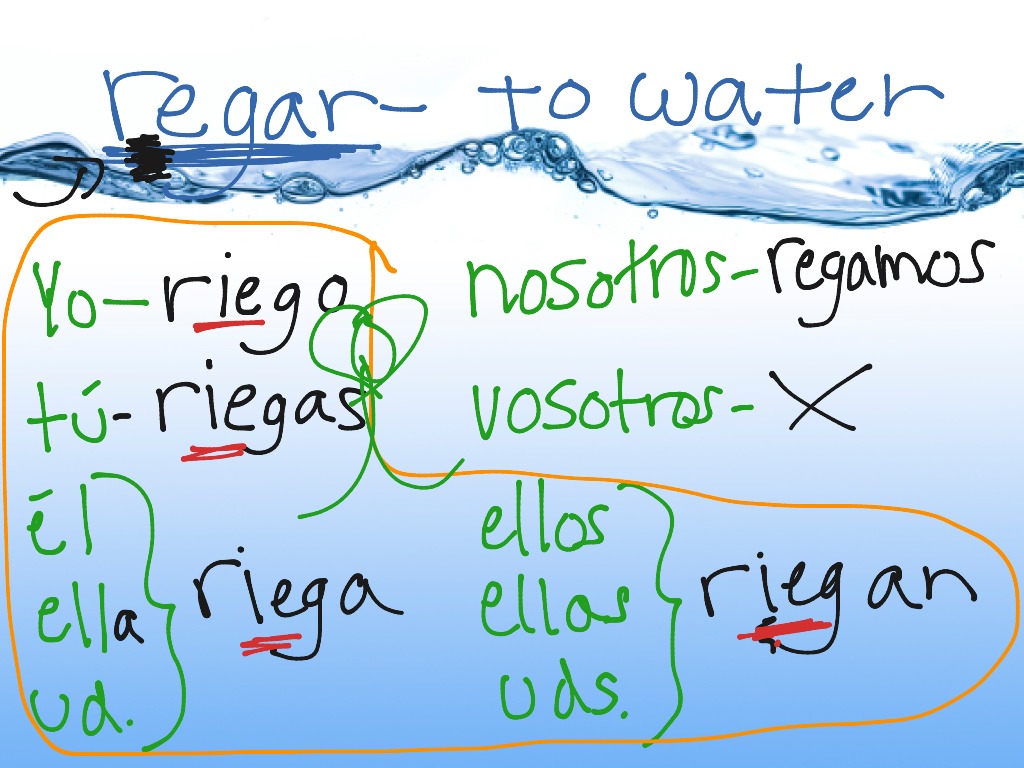 regar- to water
Yo- riego
tú- riegas
él
ella
ud.
riega
nosotros- regamos
vosotros- X
ellos
ellas
uds.
riegan